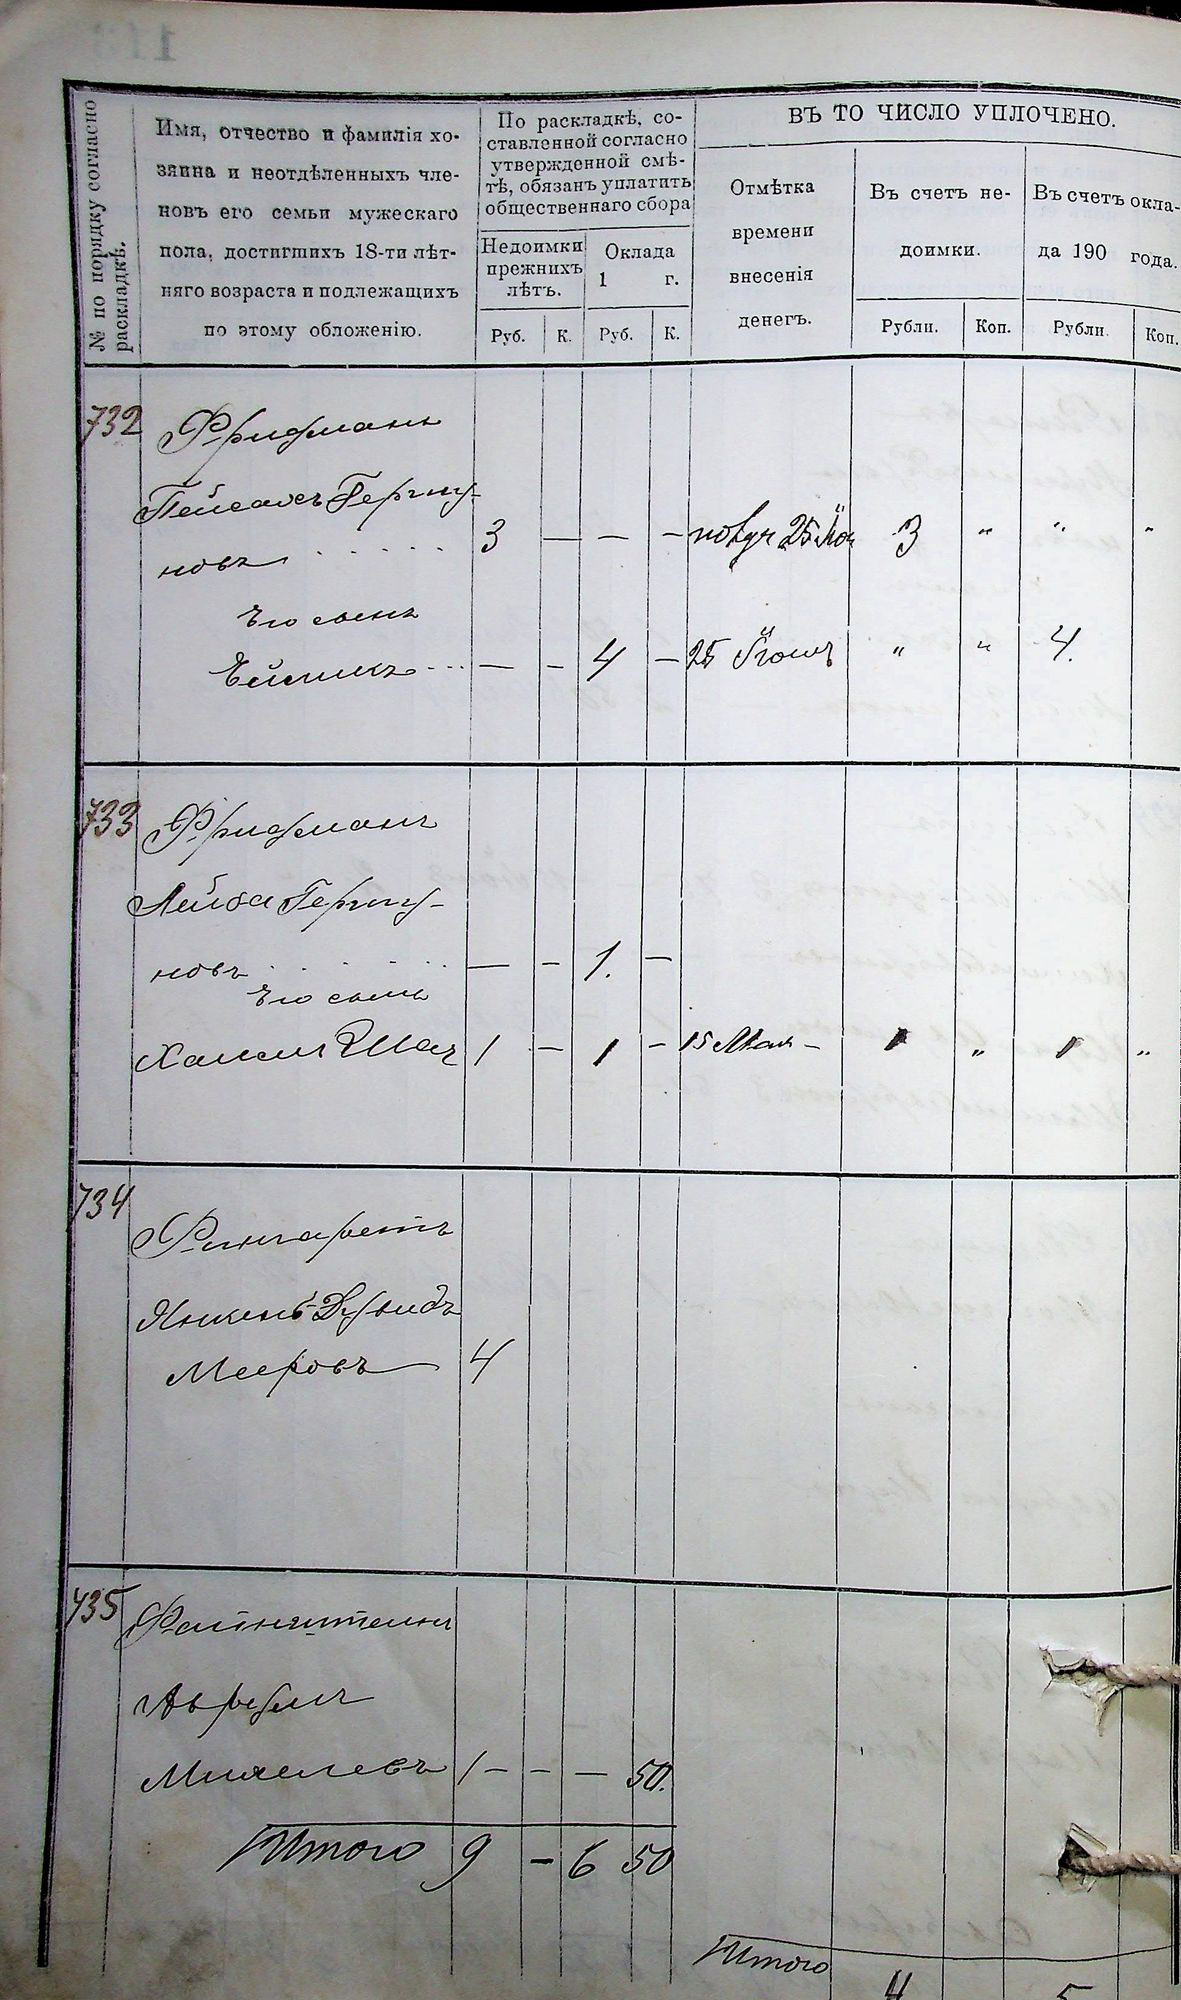 № по порядку согласно
раскладкѣ.
Имя, отчество и фамилія хо-
зяина и неотдѣленныхъ чле-
новъ его семьи мужескаго
пола, достигшихъ 18-ти лѣт-
няго возраста и подлежащихъ
по этому обложенію.
По раскладкѣ, со-
ставленной согласно
утвержденной смѣ-
тѣ, обязанъ уплатить
общественнаго сбора
Недоимки
прежнихъ
лѣтъ.
Оклада
1 г.
Руб. К. Руб. К.
ВЪ ТО ЧИСЛО УПЛОЧЕНО.
Отмѣтка
времени
внесенія
денегъ.
Въ счетъ не-
доимки.
Въ счетъ окла-
да 190 года.
Рубли. Коп. Рубли. Коп.
732 Фридманъ
Пейсахъ Гершу-
новъ . . . . . . 3 — — — 25 3 " " "
Его сынъ
Ейсикъ . . . — — 4 — 25 Іюня " " 4.
733 Фридманъ
Лейба Гершу-
новъ . . . . . — — 1. —
Его сынъ
Хаимъ Шая 1 — 1 — 15 Мая — 1 " 1 "
734
Фингаретъ
Янкель Давидъ
Мееровъ 4
735 Файнштейнъ
Аврумъ
Михелевъ 1 — — — 50.
Итого 9 — 6 50
Итого 4 5